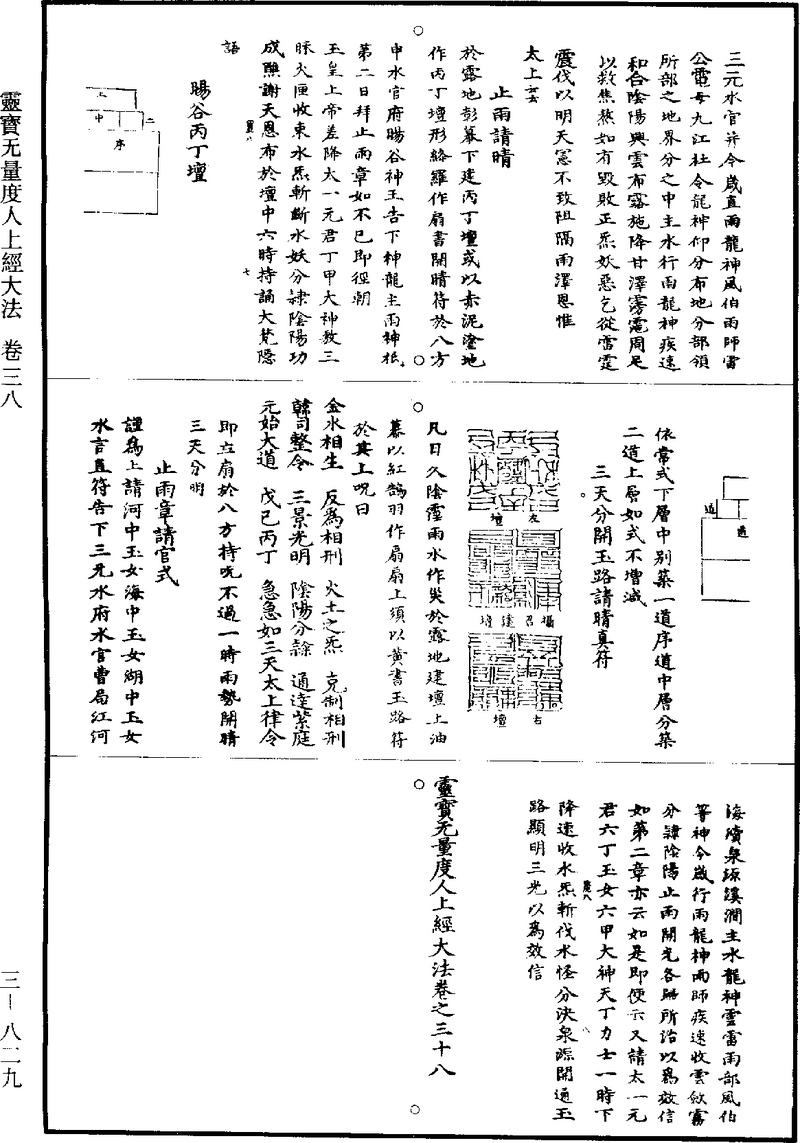 三元水官并今歲直雨龍神風伯雨師雷
公電母九江杜令龍神仰分布地分部領
所部之地界分之中主水行雨龍神疾速
和合陰陽興雲布霧施降甘澤霶霈周足
以救焦熬如有毀敗正炁妖惡乞從雷霆
震伐以明天憲不致阻隔雨澤恩惟
太上云云
止雨請晴
於露地彭幕下建丙丁壇或以赤泥塗地
作丙丁壇形絡羅作扇書開晴符於八方
申水官府暘谷神王告下神龍主雨神祇
第二日拜止雨章如不已即徑朝
玉皇上帝差降太一元君丁甲大神教三
昧火匣收束水炁斬斷水妖分隸陰陽功
成醮謝天恩布於壇中六時持誦大梵隱
語
暘谷丙丁壇
上
中 二
序
道
道
依常式下層中別築一道序道中層分築
二道上層如式不增減
三天分開玉路請晴真符
左
壇
攝召
達壇
右
壇
凡日久陰霪雨水作災於露地建壇上油
幕以紅鵝羽作扇扇上須以黃書玉路符
於其上呪曰
金水相生 反爲相刑 火土之炁 克制相刑
韓司整令 三景光明 陰陽分隸 通達紫庭
元始大道 戊己丙丁 急急如三天太上律令
即立扇於八方持呪不過一時雨勢開晴
三天分明
止雨章請官式
謹爲上請河中玉女海中玉女湖中玉女
水言直符告下三元水府水官曹局江河
海瀆泉源溪澗主水龍神雲雷雨部風伯
等神今歲行雨龍神雨師疾速收雲斂霧
分隸陰陽止雨開光各歸所治以爲效信
如第二章亦云如是即便示又請太一元
君六丁玉女六甲大神天丁力士一時下
降速收水炁斬伐水怪分決泉源開通玉
路顯明三光以爲效信
靈寶无量度人上經大法卷之三十八
靈寶无量度人上經大法 卷三八
三－八二九